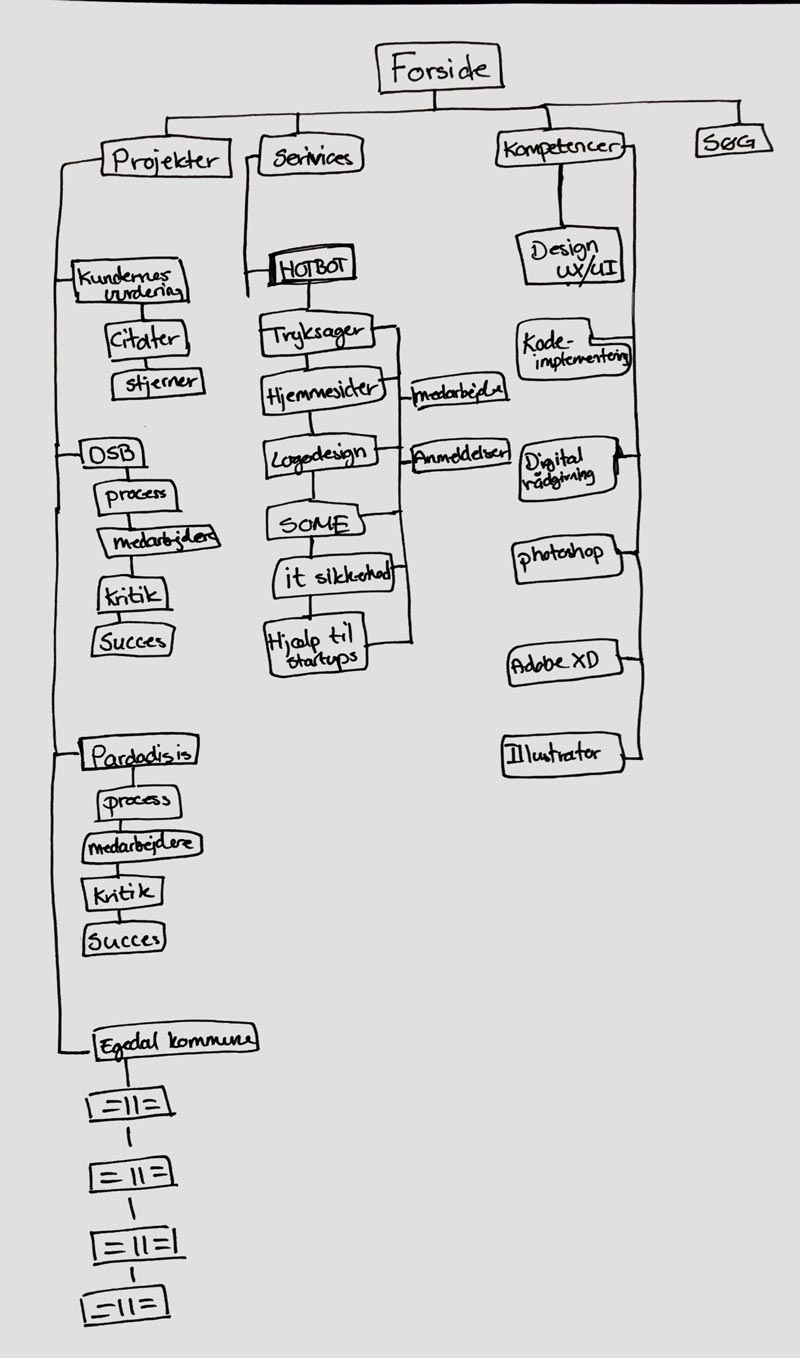 Forside
Projekter
Serivices
Kompetencer
SØG
Kundernes
vurdering
Citater
stjerner
DSB
process
medarbejdere
Kritik
Succes
Pardadisis
process
medarbejdere
Kritik
Succes
Egedal kommune
=11=
=11=
=11=
=11=
HOTBOT
Tryksager
Hjemmesider
Logodesign
SOME
it sikkerhed
Hjælp til
startups
medarbejdre
Anmeldelser
Design
UX/UI
Kode-
implementering
Digital
rådgivning
photoshop
Adobe XD
Illustrator